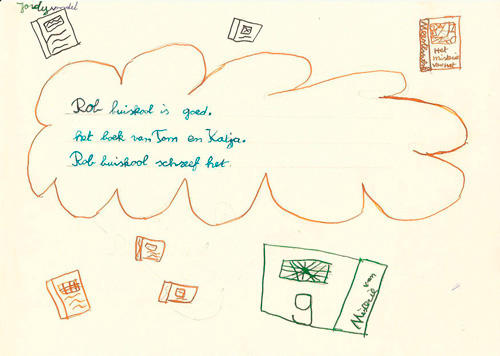 Jordy
Het
misterie
van het
Rob buiskool is goed.
het boek van Tom en Katja.
Rob buiskool schreef het.
g
Misterie van